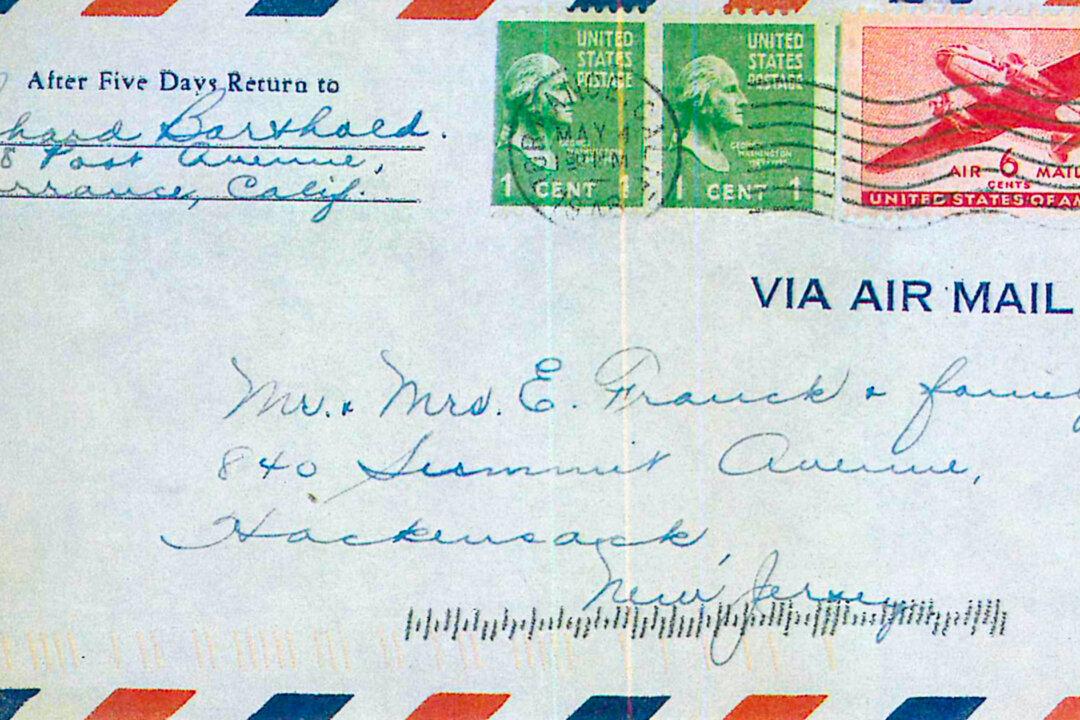 After Five Days Return to
hard Barthold.
8 Post Avenue,
rrance, Calif.
UNITED
STATES
POSTAGE
GEORGE
WASHINGTON
1 CENT 1
UNITED
STATES
POSTAGE
GEORGE
WASHINGTON
1 CENT 1
TORRANCE CALIF.
MAY 4
PM
AIR 6 MAIL
CENTS
UNITED STATES OF AM
VIA AIR MAIL
Mr. & Mrs. E. Franck & family
840 Summit Avenue,
Hackensack,
New Jersey